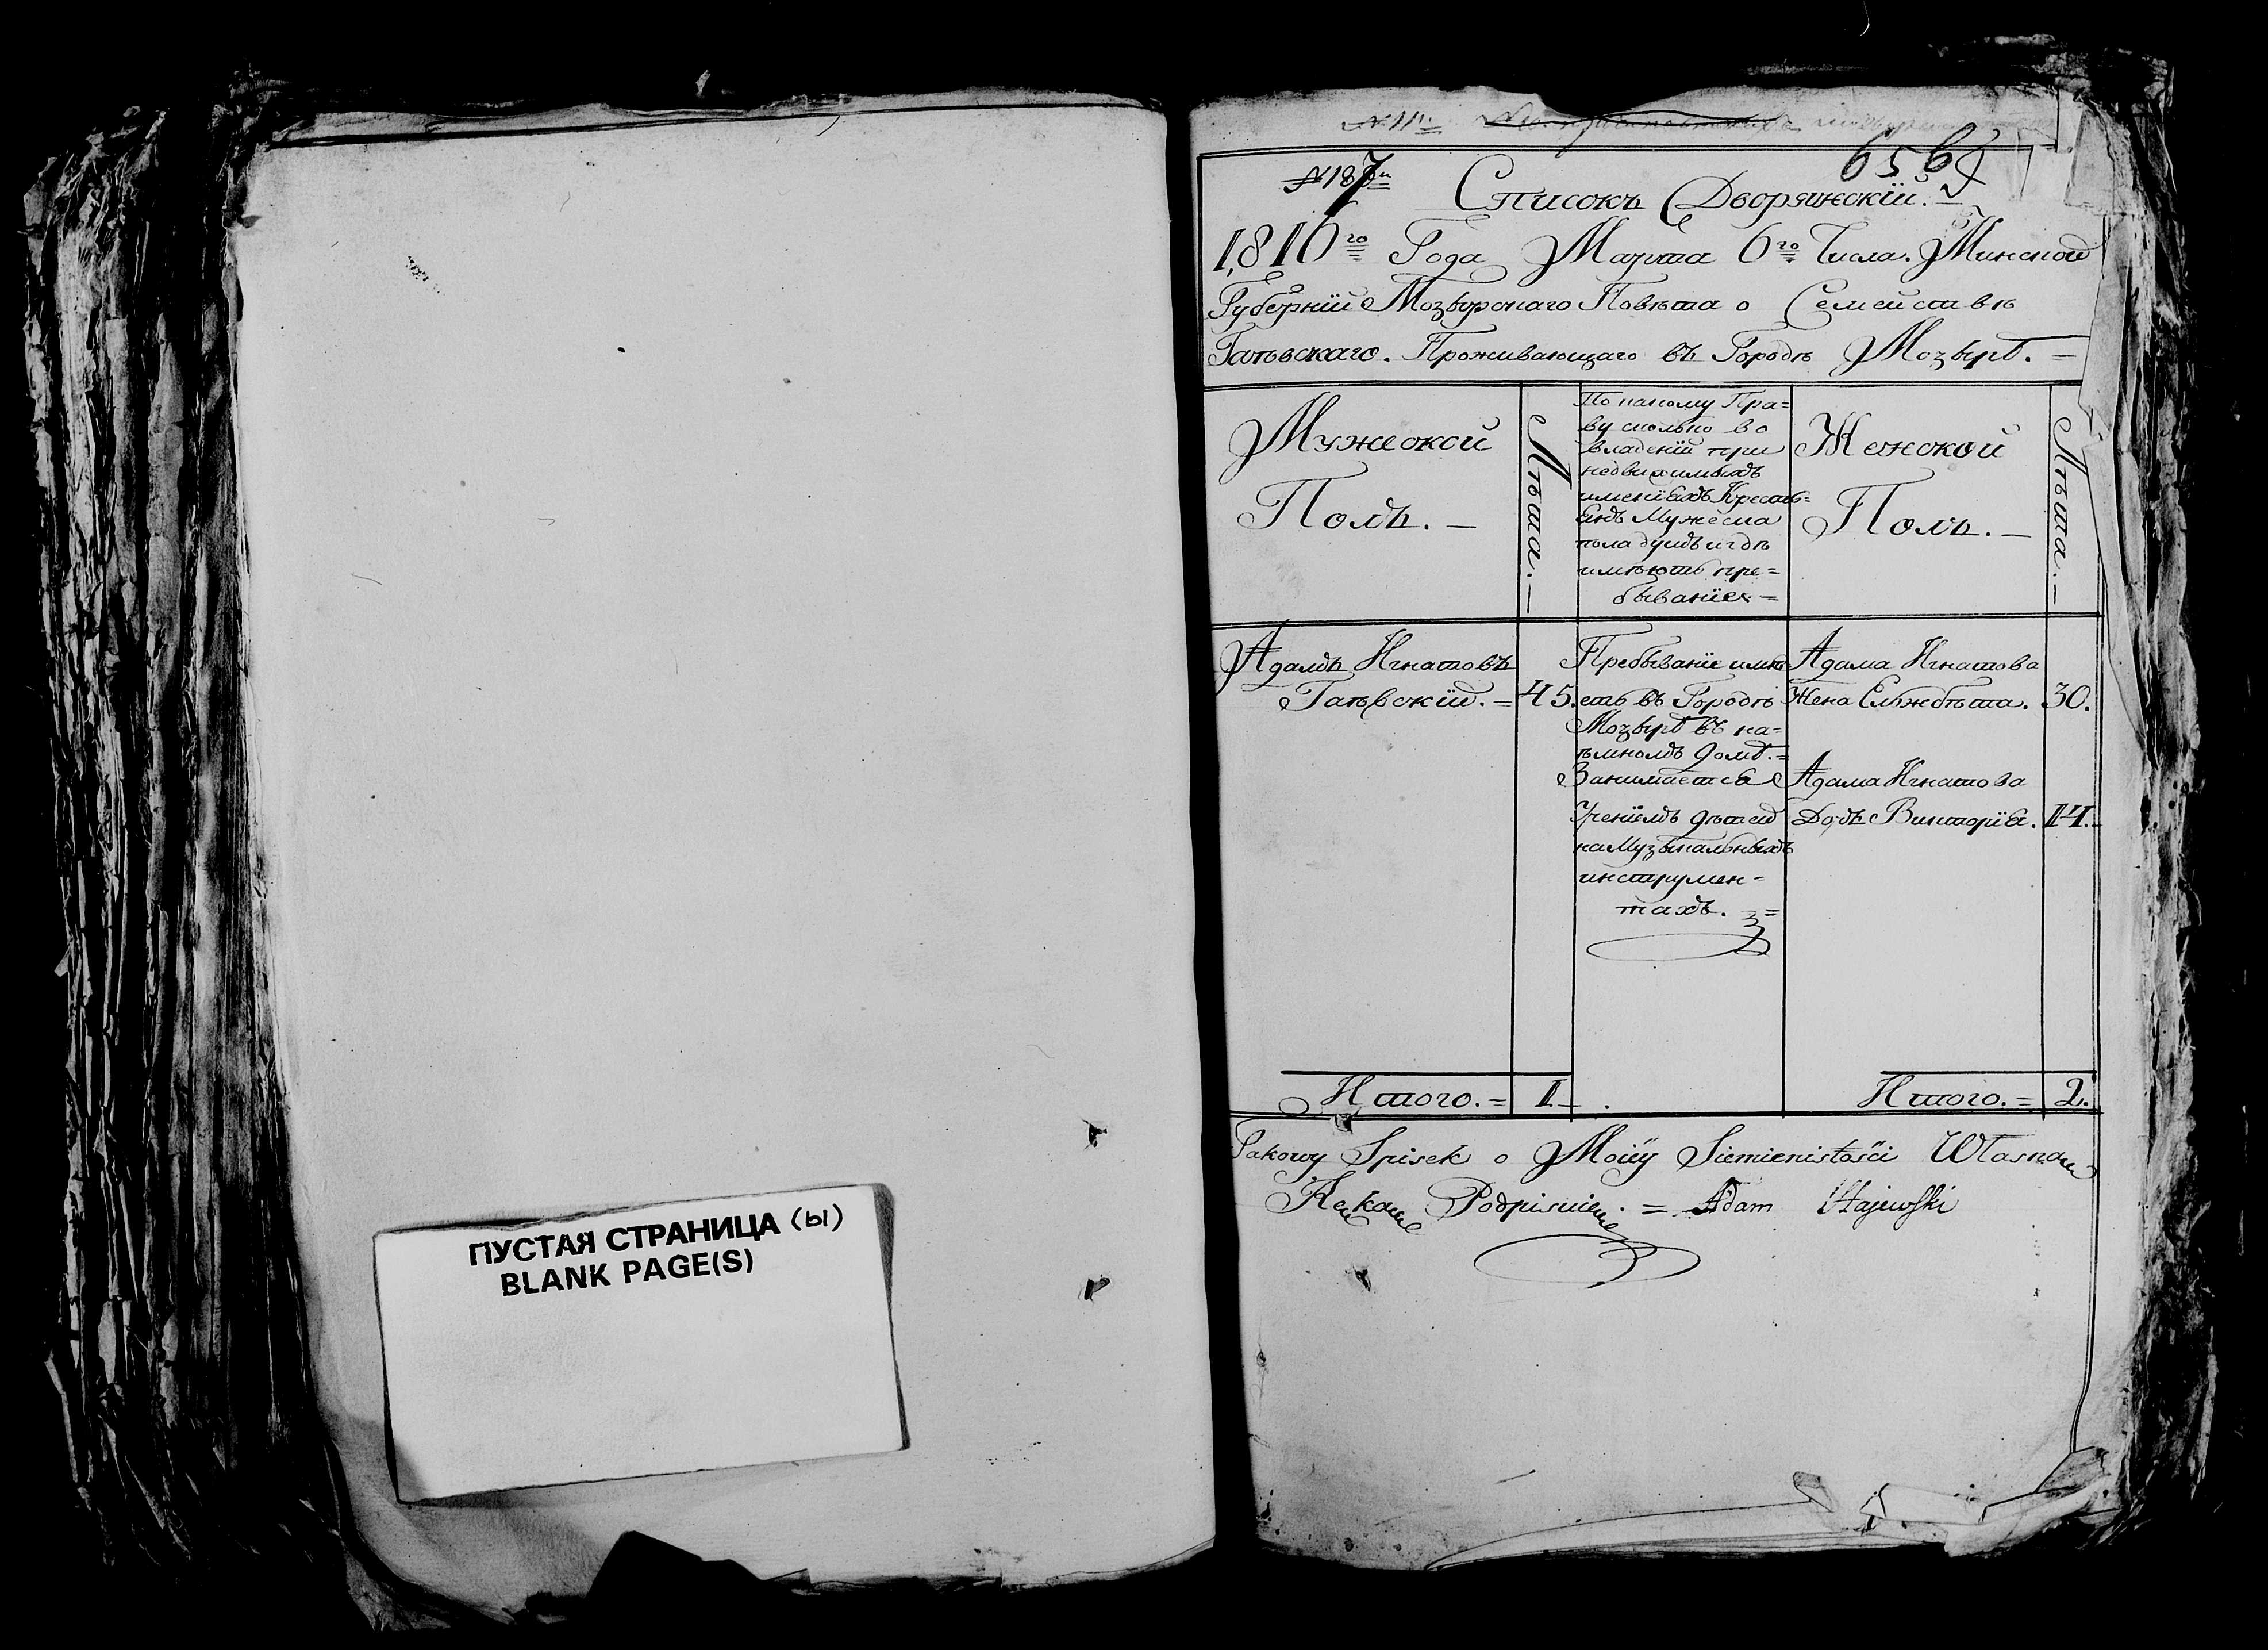 ПУСТАЯ СТРАНИЦА (Ы)
BLANK PAGE(S)
№ 11й
№ 187й
656
Списокъ Дворянскій. –
1816го Года Марта 6го Числа. Минской
Губерніи Мозырскаго Повѣта о Семействѣ
Гаевскаго. Проживающаго въ Городѣ Мозырѣ. =
Мужеской
Полъ. –
Лѣта. –
По какому Пра=
ву сколько во
владеніи при
недвижимыхъ
именіяхъ Кресть=
янъ Мужеска
пола душъ и гдѣ
имѣютъ пре=
бываніе =
Женской
Полъ. –
Лѣта. –
Адамъ Игнатовъ
Гаевскій. = 45.
Пребываніе имѣ
етъ въ Городѣ
Мозырѣ въ на=
ѣмномъ домѣ. =
Занимается
Ученіемъ дѣтей
на Музыкальныхъ
инструмен=
тахъ. =
Адама Игнатова
Жена Ельжбѣта. 30.
Адама Игнатова
Дочь Викторія. 14.
Итого. = 1 –
Итого. = 2.
Takowy Spisek o Moiey Siemienistości Własną
Ręką Podpisuię. = Adam Hajewski